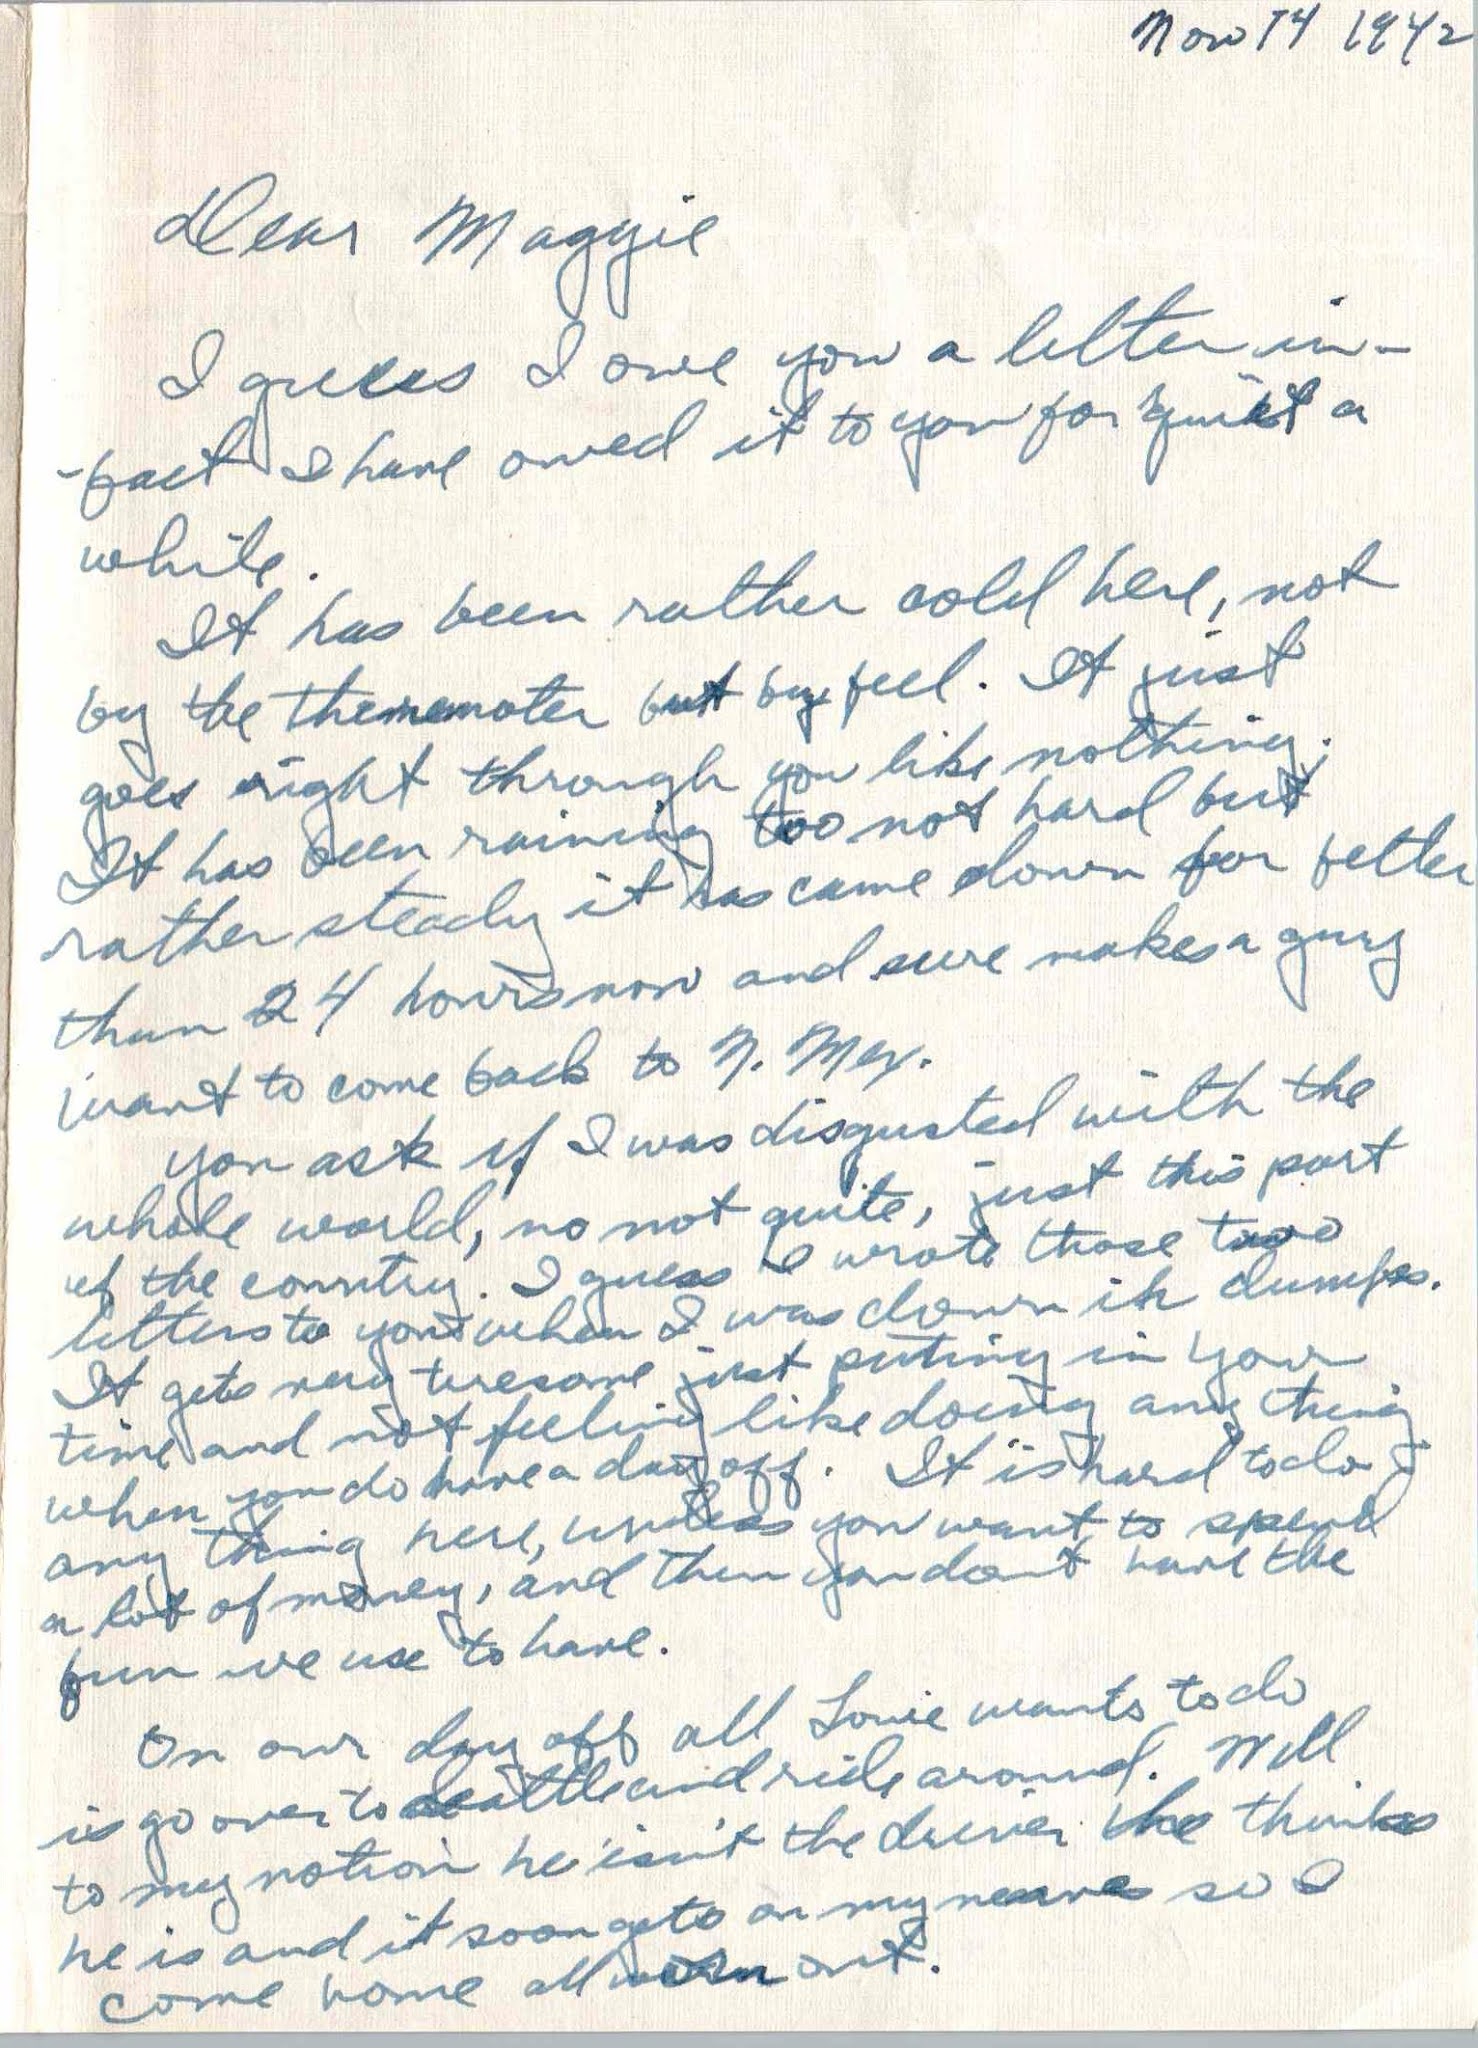 Nov 14 1942
Dear Maggie
I guess I owe you a letter in-
-fact I have owed it to you for quiet a
while.
It has been rather cold here, not
by the thememoter but by feel. It just
goes right through you like nothing.
It has been raining too not hard but
rather steady it has came down for better
than 24 hours now and sure makes a guy
want to come back to N. Mex.
You ask if I was disgusted with the
whole world, no not quite, just this part
of the country. I guess I wrote those two
letters to you when I was down in dumps.
It gets very tiresome just puting in your
time and not feeling like doing any thing
when you do have a day off. It is hard to do
any thing here, unless you want to spend
a lot of money, and then you don't have the
fun we use to have.
On our day off all Louie wants to do
is go over to Seattle and ride around. Well
to my notion he isn't the driver he thinks
he is and it soon gets on my nerves so I
come home all worn out.